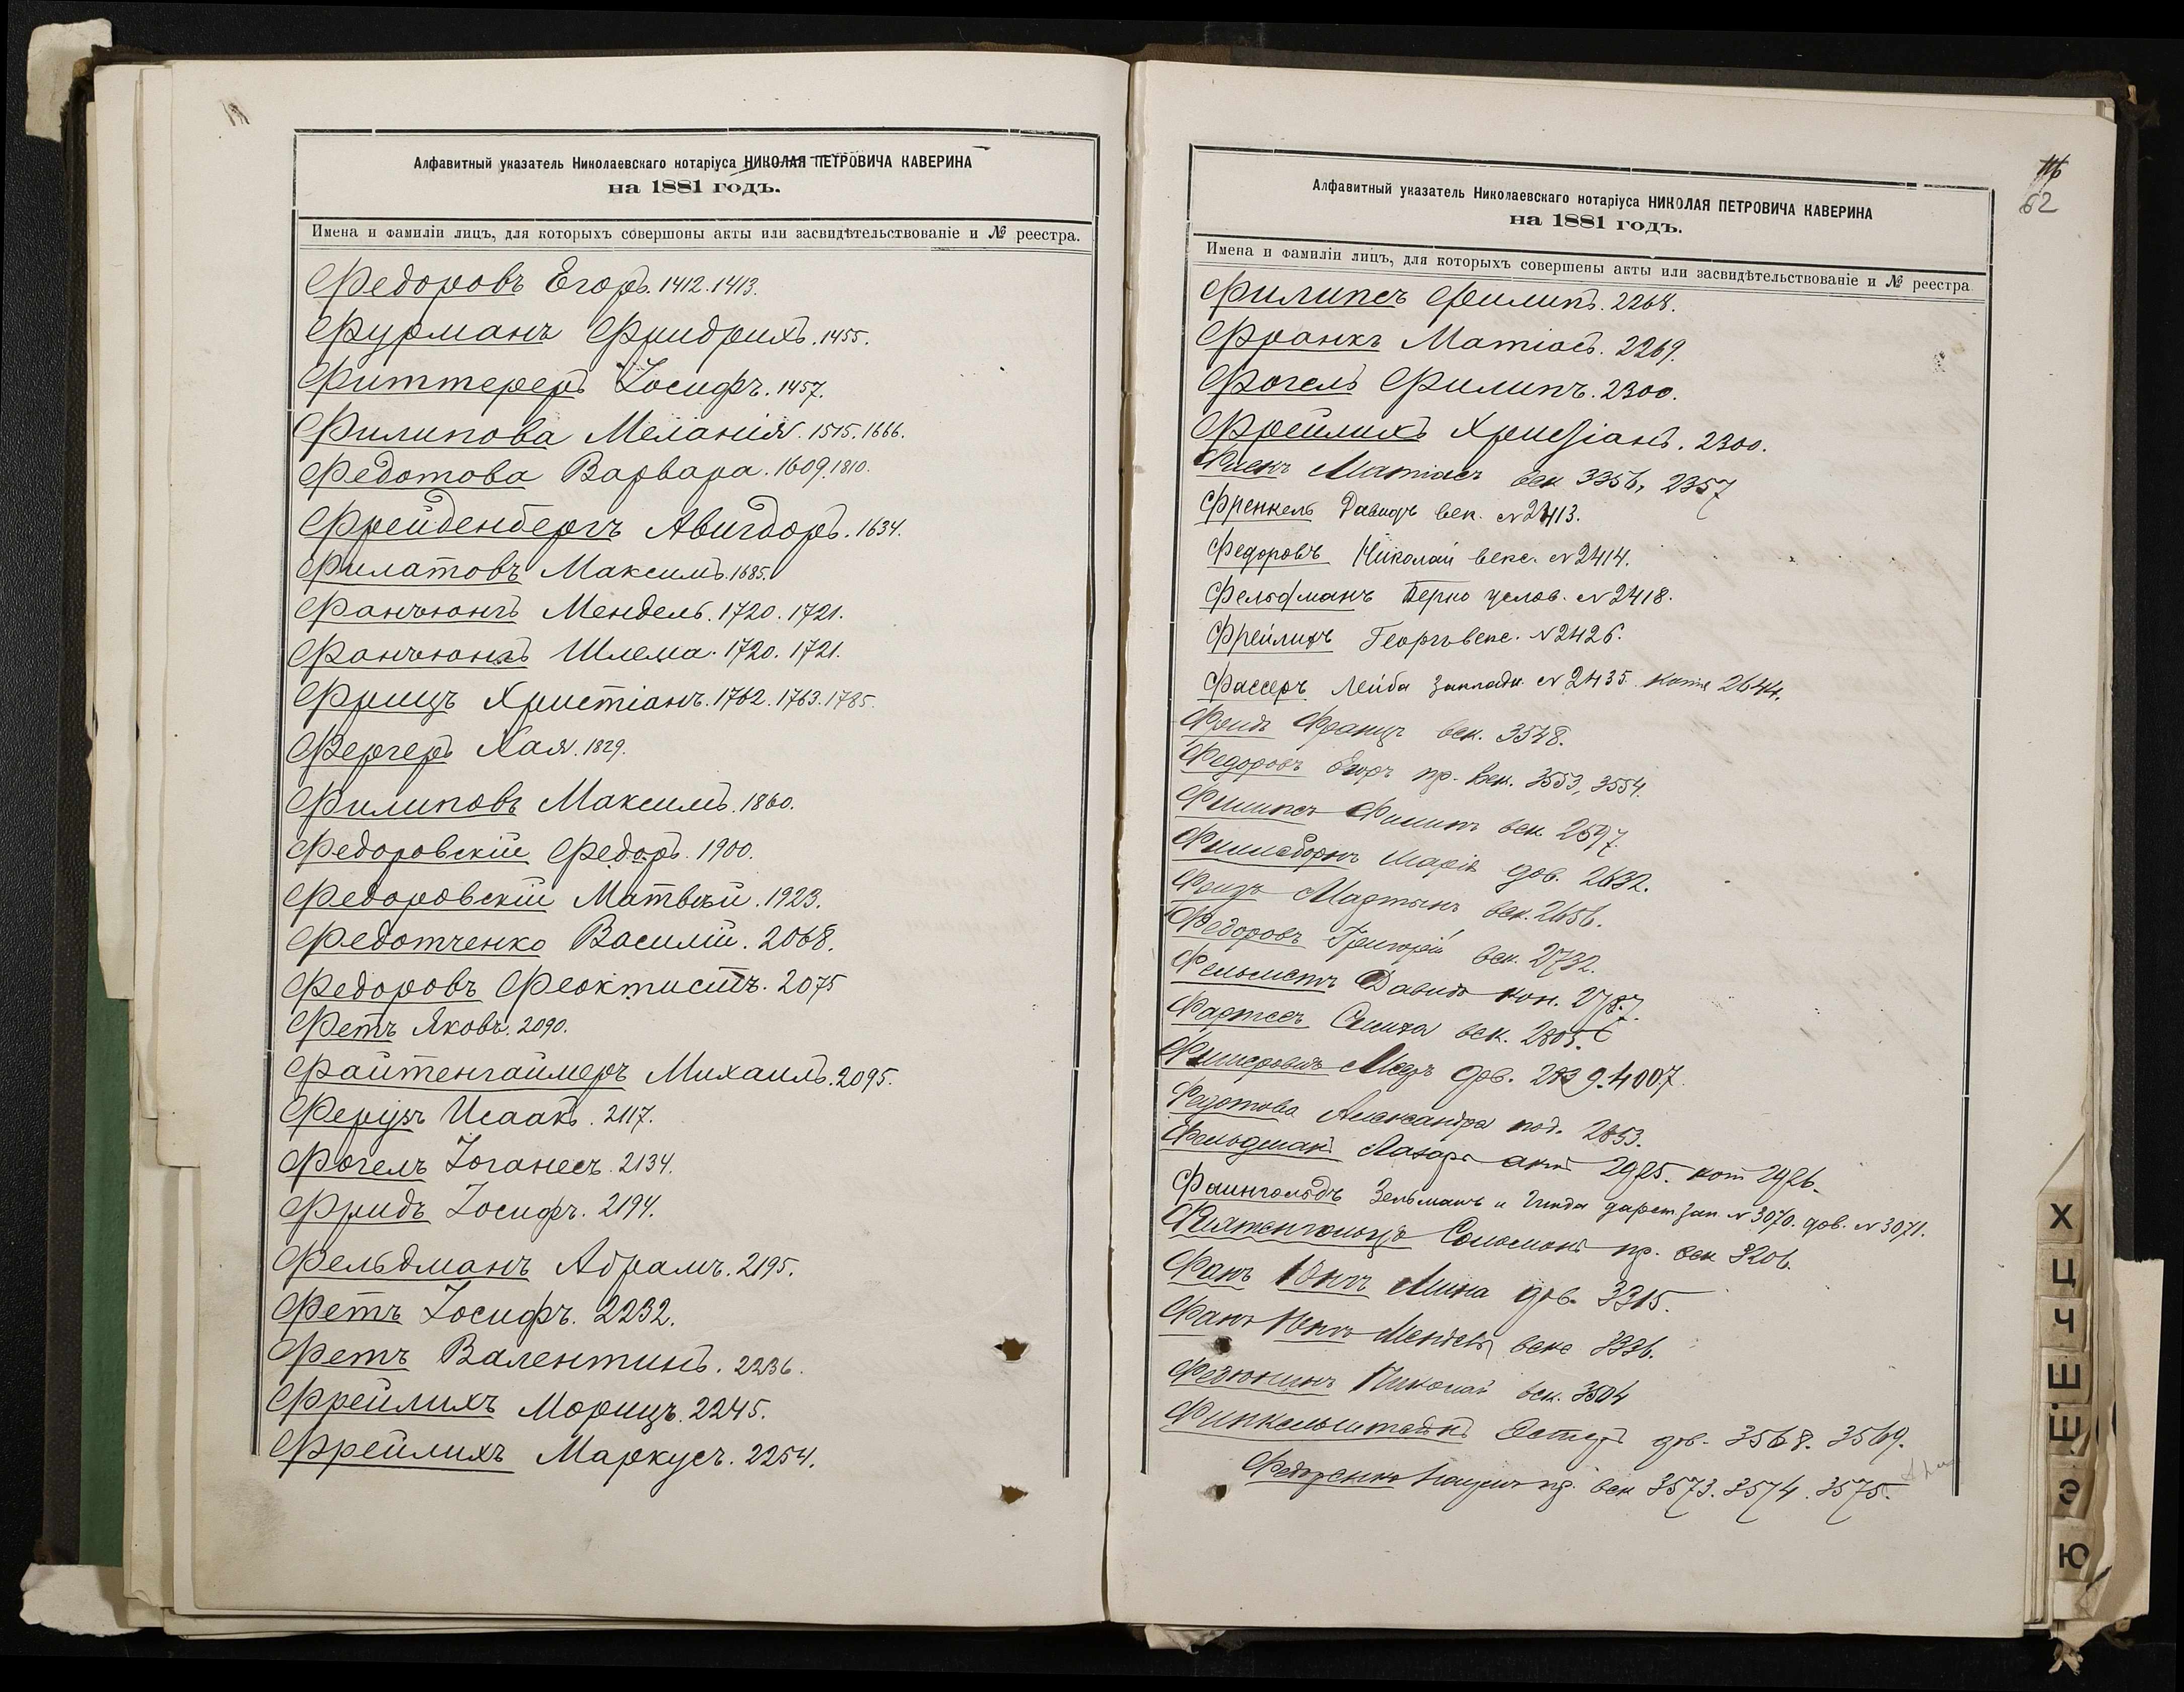 Алфавитный указатель Николаевскаго нотаріуса НИКОЛАЯ ПЕТРОВИЧА КАВЕРИНА
на 1881 годъ.
Имена и фамиліи лицъ, для которыхъ совершоны акты или засвидѣтельствованіе и № реестра.
Федоровъ Егоръ. 1412. 1413.
Фурманъ Фридрихъ. 1455.
Фиттереръ Іосифъ. 1457.
Филипова Меланія. 1515. 1666.
Федотова Варвара. 1609. 1810.
Фрейденбергъ Авигдоръ. 1634.
Филатовъ Максимъ. 1685.
Фанъюнгъ Мендель. 1720. 1721.
Фанъюнгъ Шлема. 1720. 1721.
Фрицъ Христіанъ. 1762. 1763. 1785.
Фергеръ Хая. 1829.
Филиповъ Максимъ. 1860.
Федоровскій Федоръ. 1900.
Федоровскій Матвѣй. 1923.
Федотченко Василій. 2068.
Федоровъ Феоктистъ. 2075
Фетъ Яковъ. 2090.
Файтенгаймеръ Михаилъ. 2095.
Исаакъ. 2117.
Фогель Іоганесъ. 2134.
Фридъ Іосифъ. 2194.
Фельдманъ Абрамъ. 2195.
Фетъ Іосифъ. 2232.
Фетъ Валентинъ. 2236.
Фрейлихъ Морицъ. 2245.
Фрейлихъ Маркусъ. 2254.
62
Алфавитный указатель Николаевскаго нотаріуса НИКОЛАЯ ПЕТРОВИЧА КАВЕРИНА
на 1881 годъ.
Имена и фамиліи лицъ, для которыхъ совершены акты или засвидѣтельствованіе и № реестра
Филипсъ Филипъ. 2268.
Франкъ Матіасъ. 2269.
Фогель Филипъ. 2300.
Фрейлихъ Христіанъ. 2300.
Матіасъ век 3356, 2357
Френкель Давидъ век. № 2413.
Федоровъ Николай векс. № 2414.
Фельдманъ Берко услов. № 2418.
Фрейлихъ Георгъ векс. № 2426.
Фассеръ Лейба закладн. № 2435. копія 2644.
Фридъ Францъ век. 3548.
Федоровъ Егоръ пр. век. 3553, 3554.
Филипсъ Филипъ век 2597.
Марія дов. 2632.
Мартынъ век. 2656.
Федоровъ Григорій век. 2732.
Давидъ коп. 2787.
век. 2805.
Фишеровичъ дов. 2839. 4007.
Федотова Александра под. 2853.
Фельдманъ Лазарь актъ 2925. коп 2926.
Файнгольдъ Зельманъ и Гинда дарст. зап. № 3070. дов. № 3071.
Соломонъ пр. век 3206.
Фанъ Юнгъ Мина дов. 3315.
Фанъ Юнгъ Мендель векс 3336.
Федюнинъ Николай век. 3504
Финкельштейнъ Эстеръ дов. 3568. 3569.
Федоренко пр. век 3573. 3574. 3575.
Х
Ц
Ч
Ш
Щ
Э
Ю